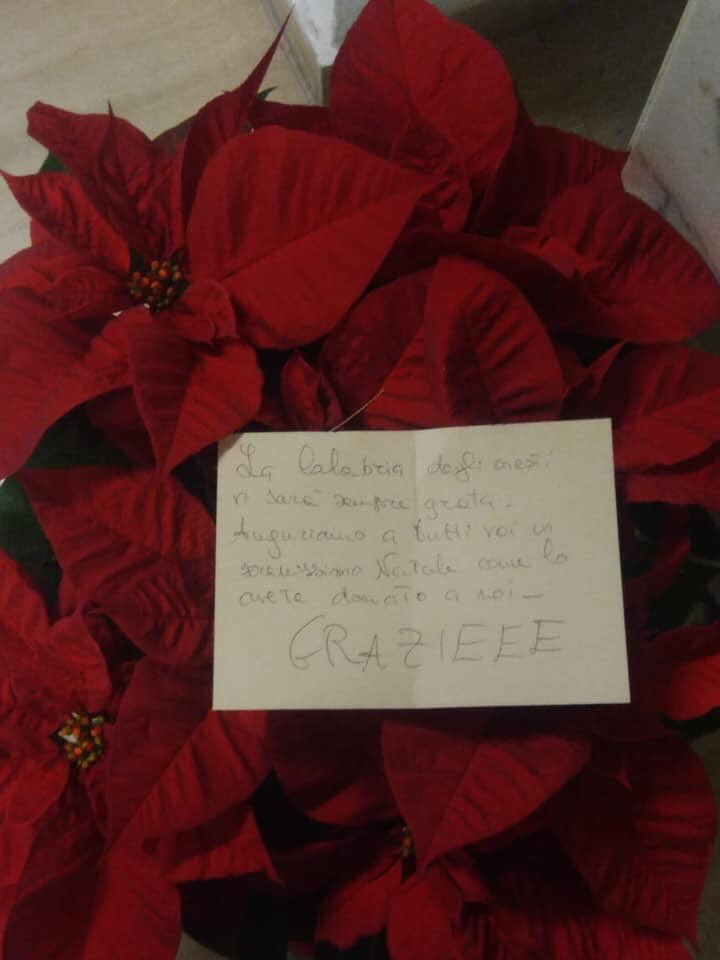 La Calabria degli onesti
vi sarà sempre grata.
Auguriamo a tutti voi un
serenissimo Natale come lo
avete donato a noi_
GRAZIEEE